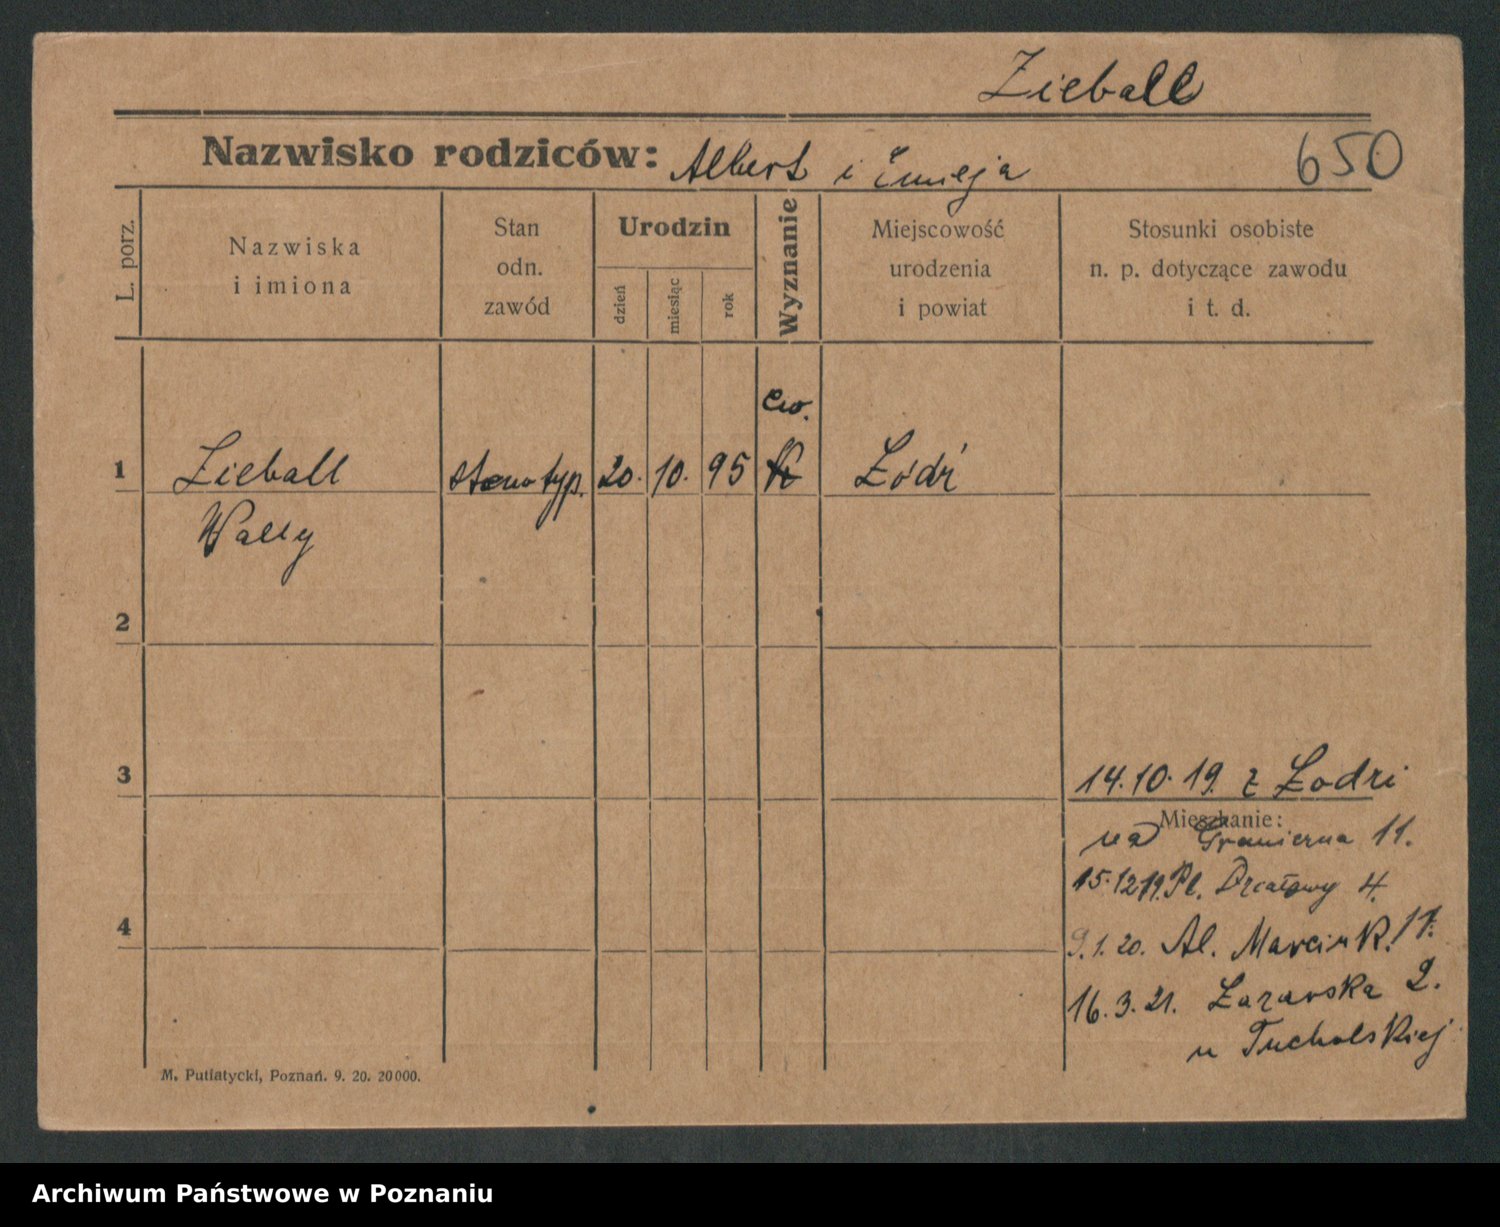 Zieball
Nazwisko rodziców: Albert i
650
L. porz.
Nazwiska
i imiona
Stan
odn.
zawód
Urodzin
dzień
miesiąc
rok
Wyznanie
Miejscowość
urodzenia
i powiat
Stosunki osobiste
n. p. dotyczące zawodu
i t. d.
ew.
1 Zieball stenotyp. 20. 10. 95 K Łódź
Wally
2
3
14.10.19. z Łodzi
Mieszkanie:
na 11.
15.12.19. Pl. Działowy 4.
4
9.1.20. Al. Marcink. 17.
16.3.21. Łazarska 2.
u Tucholskiej
M. Putiatycki, Poznań. 9. 20. 20000.
Archiwum Państwowe w Poznaniu